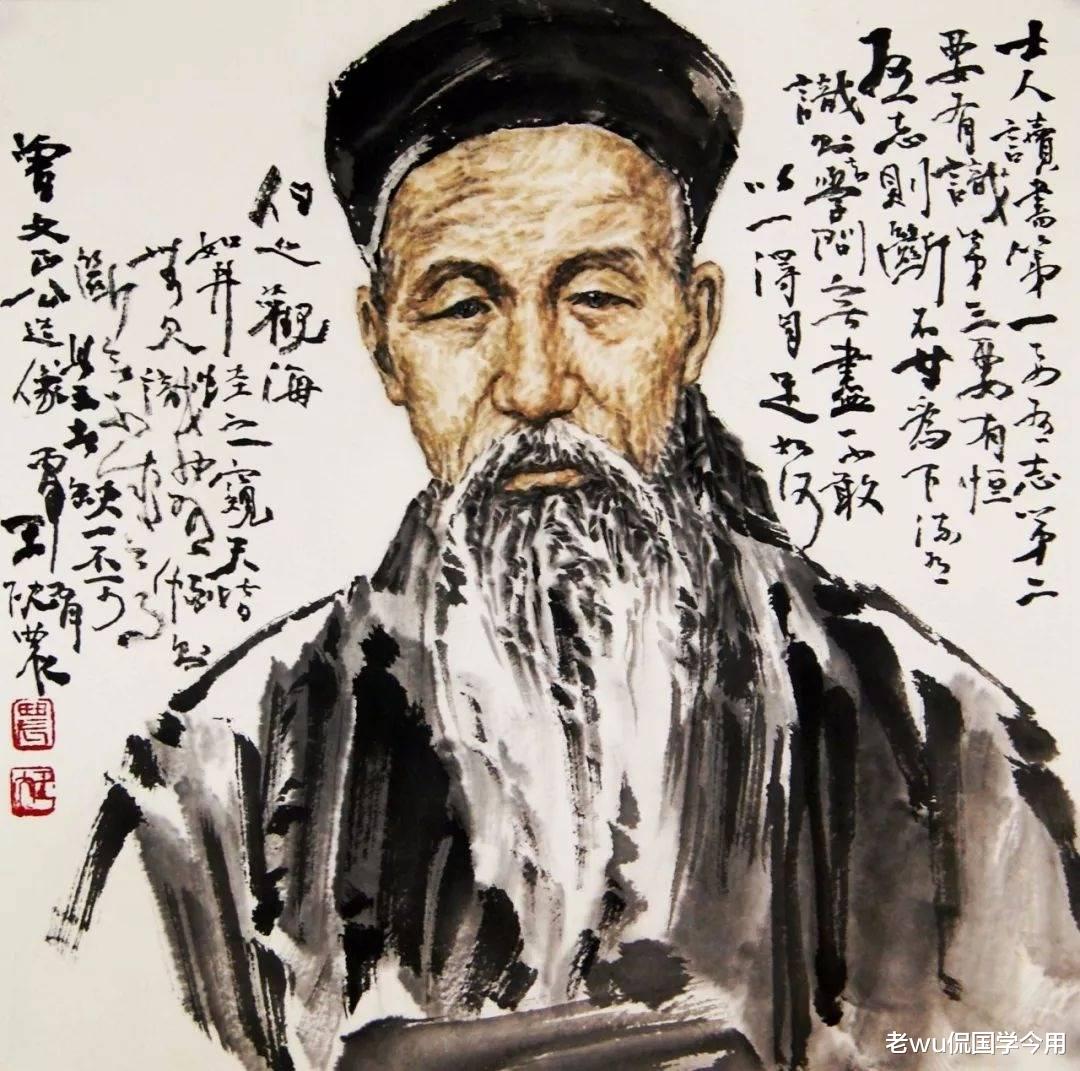 士人讀書第一要有志第二
要有識第三要有恒
有志則斷不甘為下流有
識則知學問無盡不敢
以一得自足如河
伯之觀海
如井蛙之窺天皆
無見識也有恒則
斷無不成之事
此三者缺一不可
曾文正公造像
老wu侃国学今用